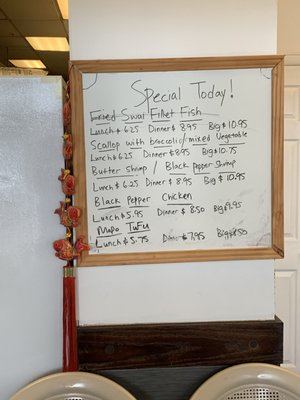 Special Today!
Fried Swai Fillet Fish
Lunch $6.25 Dinner $8.95 Big $10.95
Scallop with broccolio/mixed Vegetable
Lunch $6.25 Dinner $8.95 Big $10.75
Butter Shrimp / Black Pepper Shrimp
Lunch $6.25 Dinner $8.95 Big $10.95
Black Pepper Chicken
Lunch $5.95 Dinner $8.50 Big $9.95
Mapo Tufu
Lunch $5.75 Dinner $7.95 Big $8.50